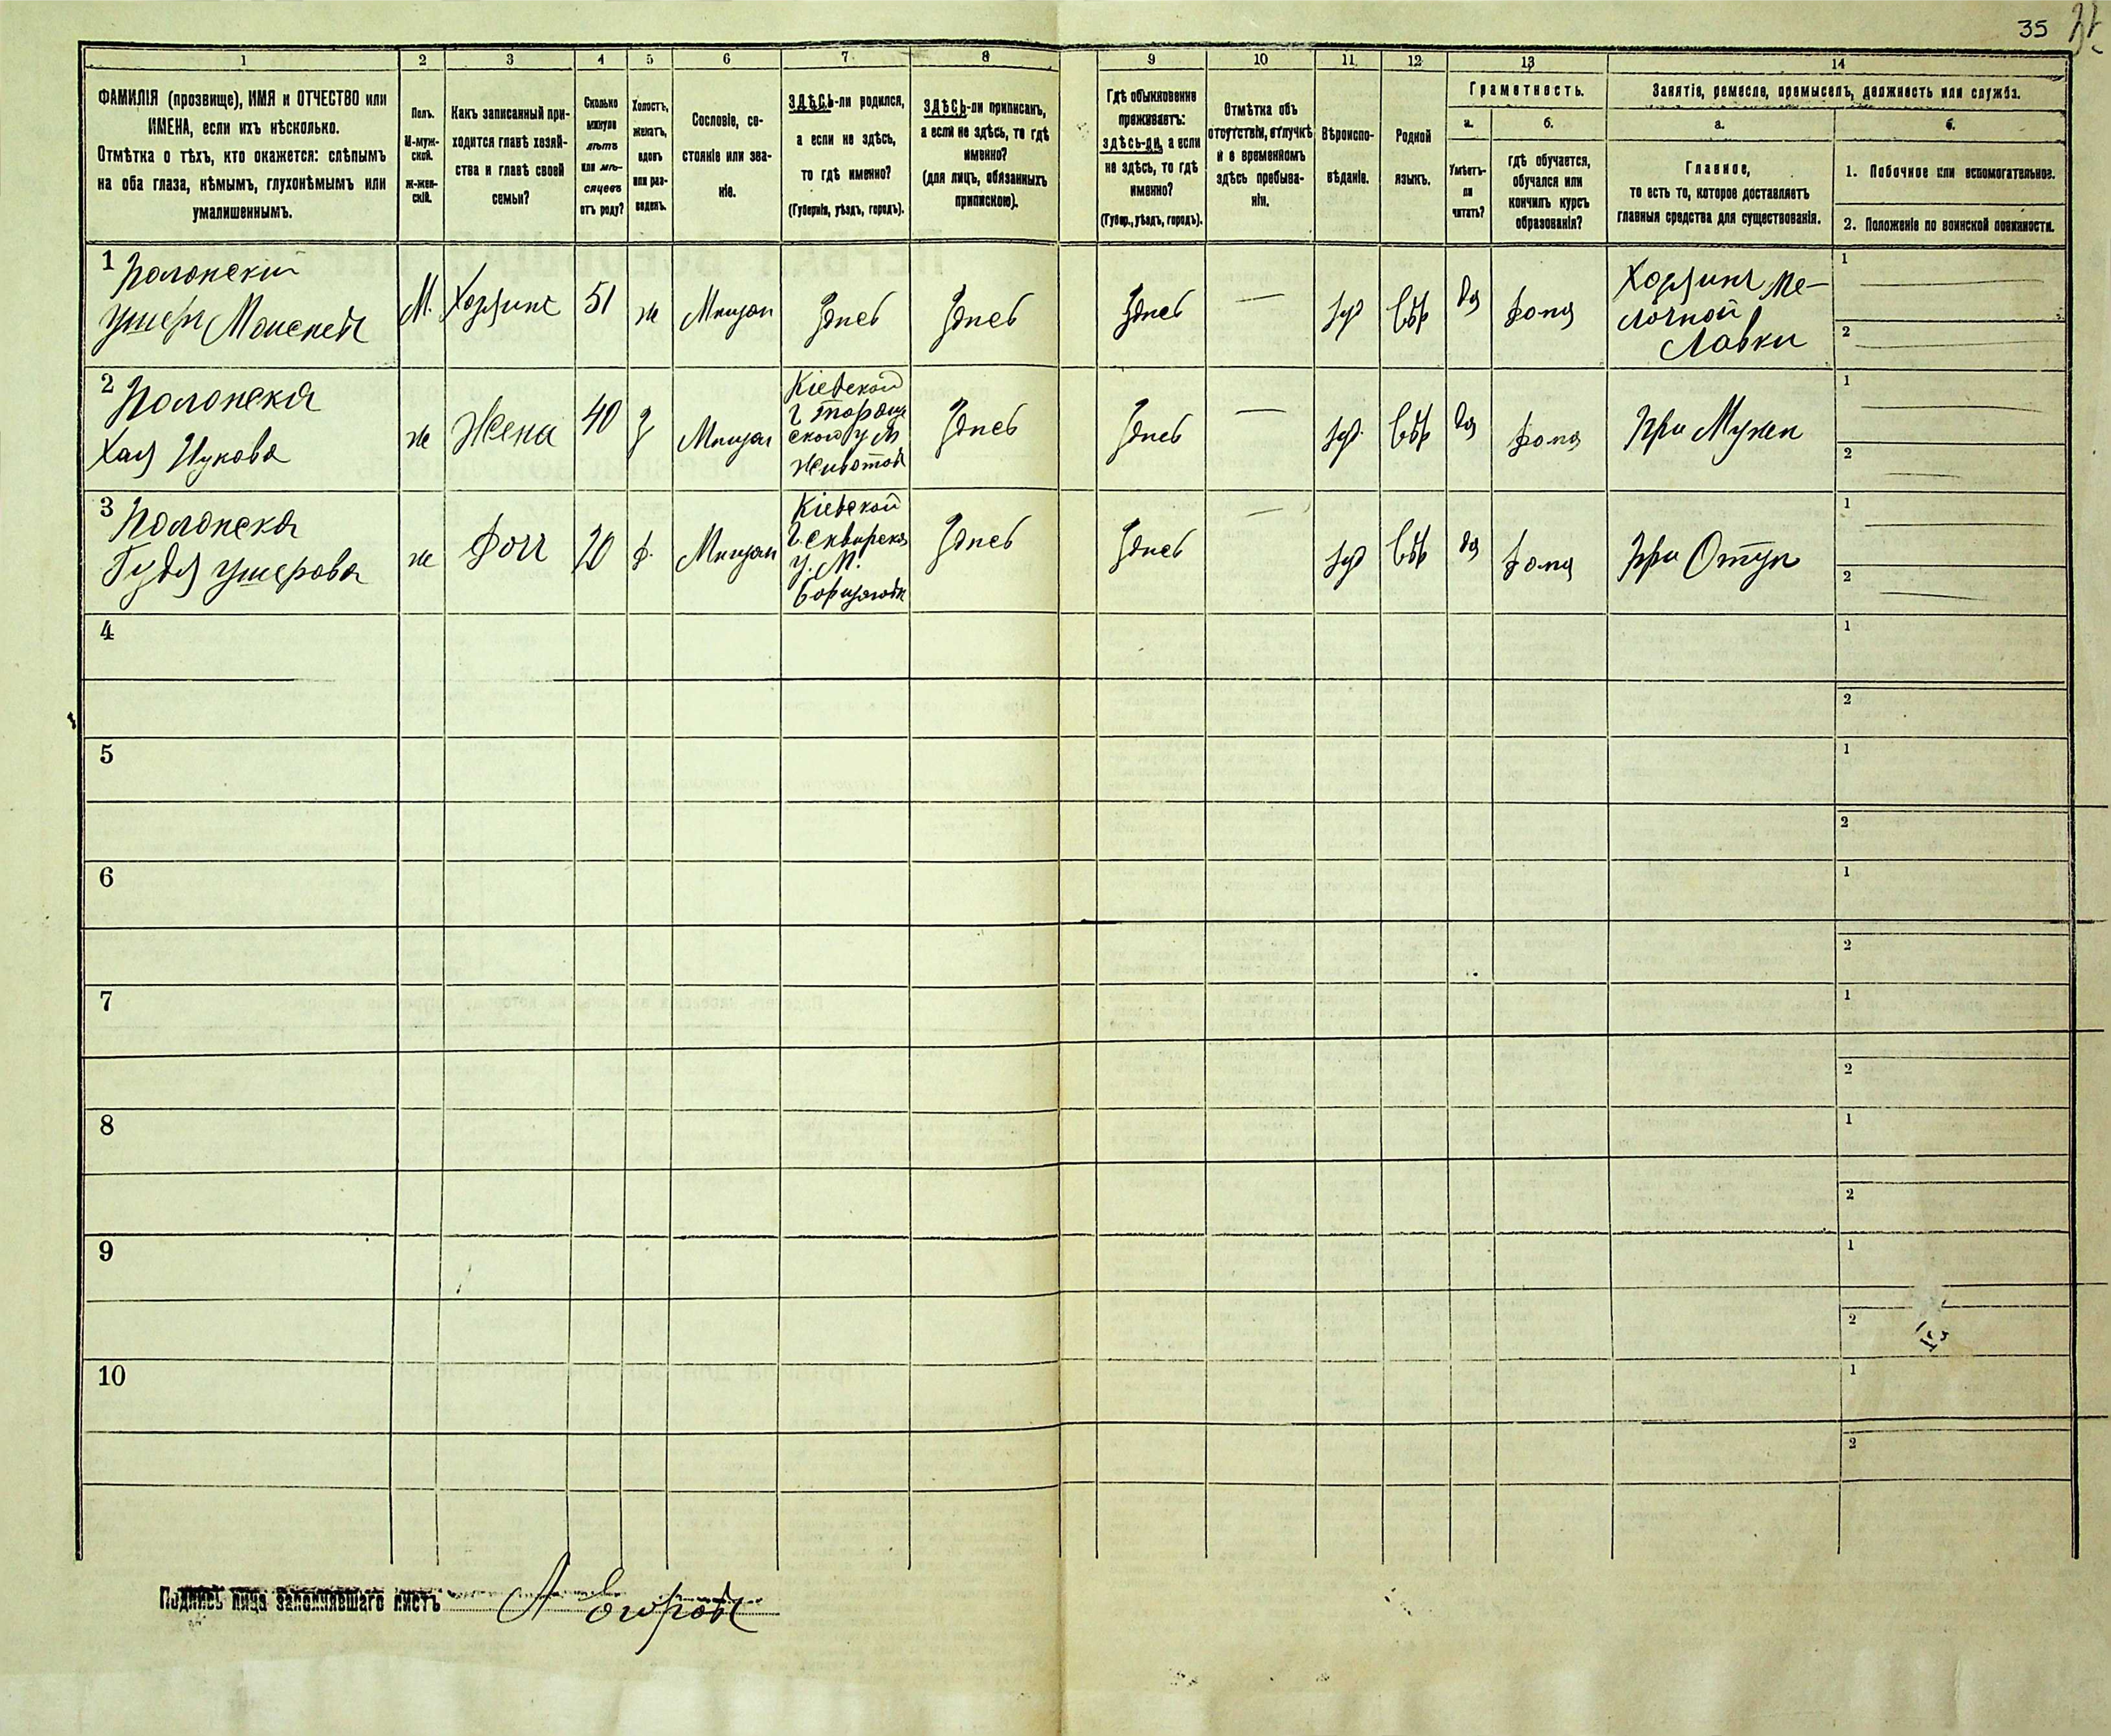 35
1
2
3
4
5
6
7
8
9
10
11
12
13
14
ФАМИЛІЯ (прозвище), ИМЯ и ОТЧЕСТВО или
ИМЕНА, если ихъ нѣсколько.
Отмѣтка о тѣхъ, кто окажется: слѣпымъ
на оба глаза, нѣмымъ, глухонѣмымъ или
умалишеннымъ.
Полъ.
М-муж-
ской.
ж-жен-
скій.
Какъ записанный при-
ходится главѣ хозяй-
ства и главѣ своей
семьи?
Сколько
минуло
лѣтъ
или мѣ-
сяцевъ
отъ роду?
Холостъ,
женатъ,
вдовъ
или раз-
веденъ.
Сословіе, со-
стояніе или зва-
ніе.
ЗДѢСЬ-ли родился,
а если не здѣсь,
то гдѣ именно?
(Губернія, уѣздъ, городъ).
ЗДѢСЬ-ли приписанъ,
а если не здѣсь, то гдѣ
именно?
(для лицъ, обязанныхъ
припискою).
Гдѣ обыкновенно
проживаетъ:
здѣсь-ли, а если
не здѣсь, то гдѣ
именно?
(Губер., уѣздъ, городъ).
Отмѣтка объ
отсутствіи, отлучкѣ
и о временномъ
здѣсь пребыва-
ніи.
Вѣроиспо-
вѣданіе.
Родной
языкъ.
Грамотность.
а.
Умѣетъ-
ли
читать?
б.
гдѣ обучается,
обучался или
кончилъ курсъ
образованія?
Занятіе, ремесло, промыселъ, должность или служба.
а.
Главное,
то есть то, которое доставляетъ
главныя средства для существованія.
б.
1. Побочное или вспомогательное.
2. Положеніе по воинской повинности.
1 Полонский
Ушер Моисеев
М. Хозяинъ 51 ж Мещан Здесь Здесь Здесь — Иуд Евр да дома
Хозяинъ Ме-
лочной
Лавки
1
2
2 Полонска
Хая Ицкова
ж Жена 40 З Мещан
Кіевской
г. Таращ
ского у м
Животов
Здесь Здесь — Иуд. Евр да дома При Мужеи
1
2
3 Полонска
Гудя Ушерова
ж Доч 20 д. Мещан
Кіевской
г. Сквирска
у. М.
Борщаговк
Здесь Здесь — Иуд Евр да дома При Отцу
1
2
4
1
2
5
1
2
6
1
2
7
1
2
8
1
2
9
1
2
10
1
2
Подпись лица заполнявшаго листъ